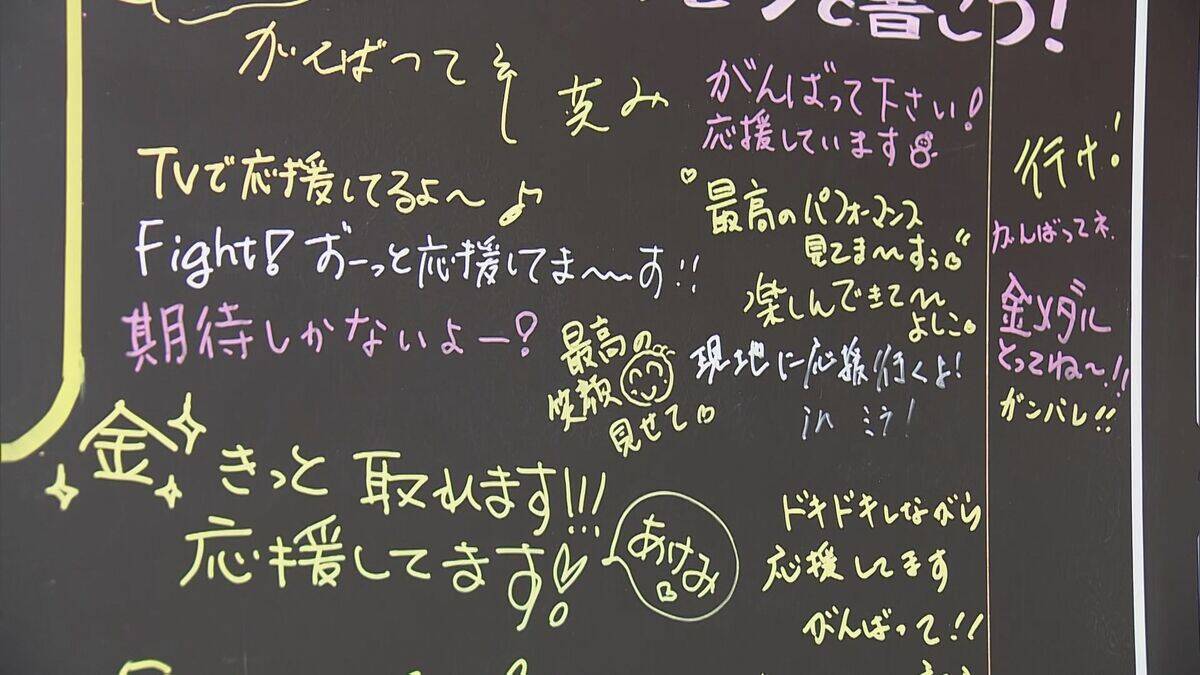 と書こう!
がんばってネ
英み
がんばって下さい!
応援しています
行け!
TVで応援してるよ〜♪
最高のパフォーマンス
見てま〜すぅ
がんばってネ
Fight! ずーっと応援してま〜〜す!!
楽しんできて〜
よしこ
金メダル
とってね〜!!
期待しかないよー!
最高の
笑顔
見せて
現地に応援行くよ!
in ミラノ!
ガンバレ!!
金 きっと 取れます!!!
応援してます!
あけみ
ドキドキしながら
応援してます
がんばって!!